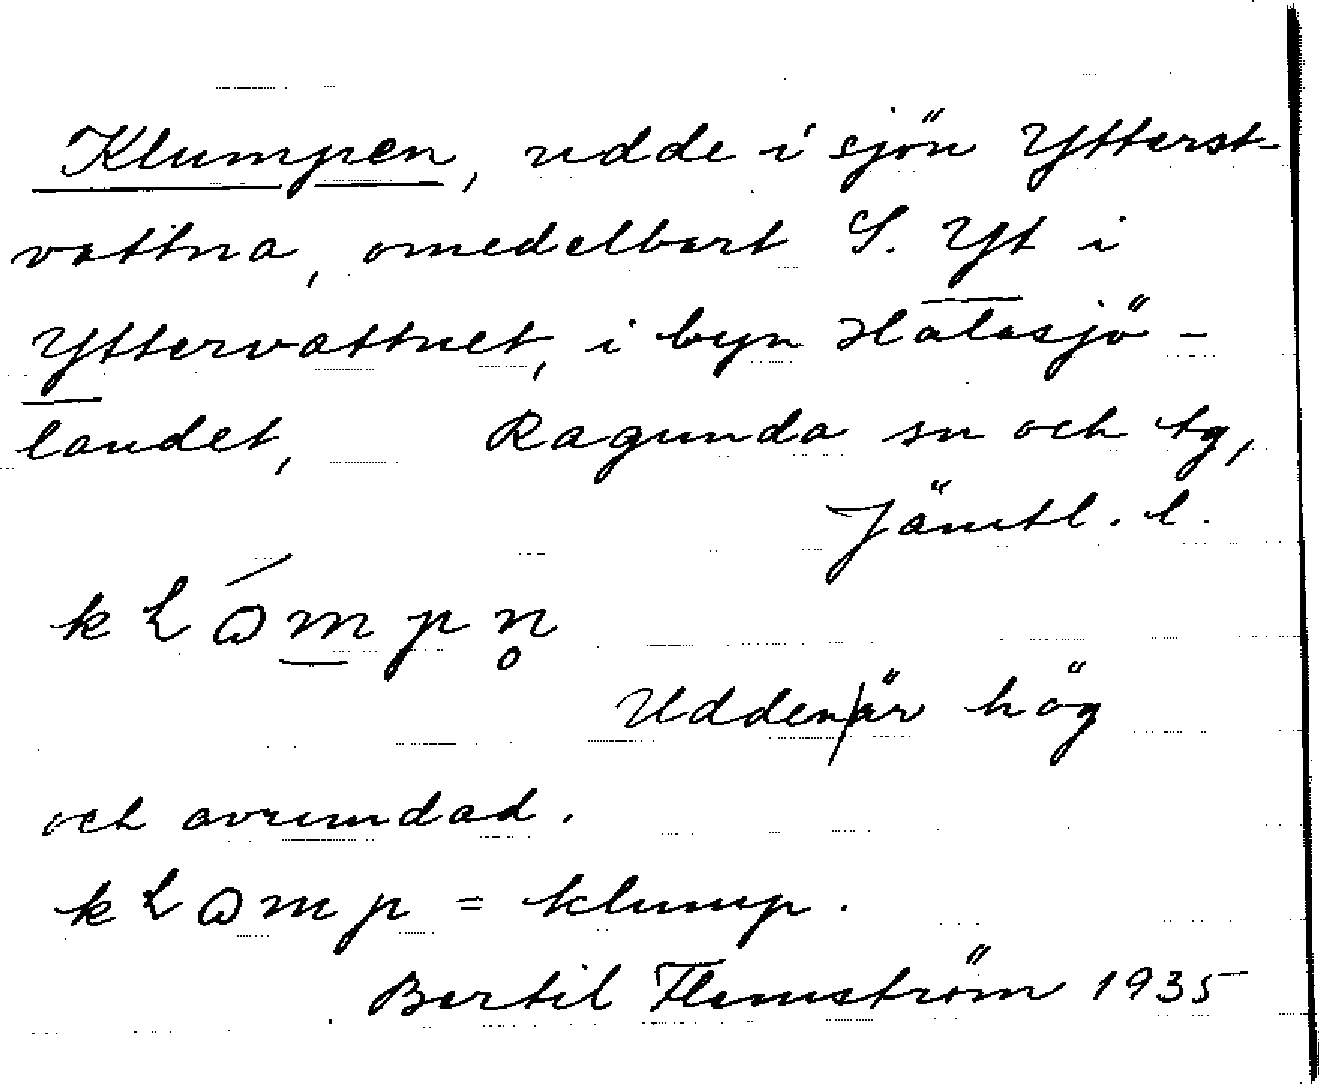 Klumpen, udde i sjön Ytterst-
vattna, omedelbart S. Yt i
Yttervattnet, i byn Halasjö-
landet, Ragunda sn och tg,
Jämtl. l.
Udden är hög
och avrundad.
= klump.
Bertil Flemström 1935